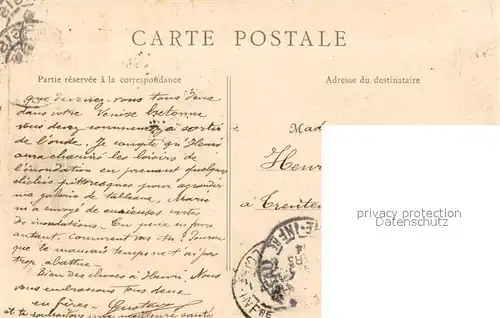 CARTE POSTALE
Partie réservée à la correspondance
Adresse du destinataire
que devenez-vous tous deux
dans votre Venise bretonne
vous devez commencer à sortir
de l'onde. Je compte qu'Henri
aura charmé les loisirs de
l'inondation en prenant quelques
clichés pittoresques pour agrandir
ma galerie de tableaux, Marie
m'a envoyé de curieuses cartes
d'inondations. On peut en faire
autant. Comment vas-tu ?
que le mauvais temps ne t'ai pas trop
abattue.
Bien des choses à Henri. Nous
vous embrassons tous deux
en frères. Gustave
et te souhaitons une meilleure santé
Mad
Henr
à
privacy protection
www.oldthing.de